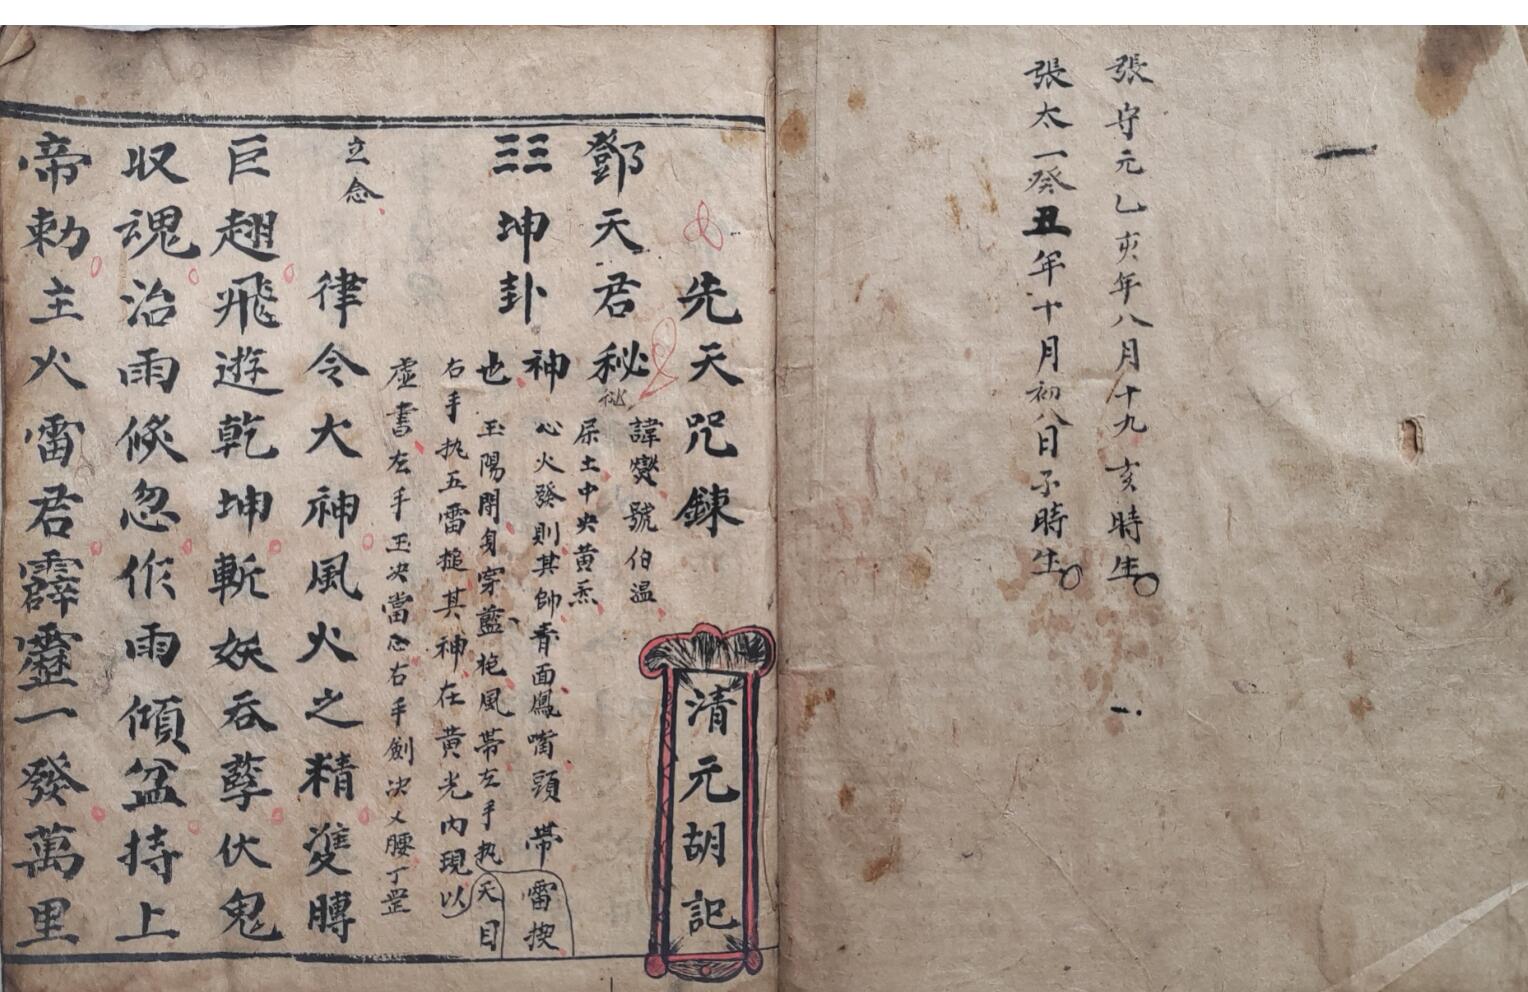 張守元乙亥年八月十九亥時生
張太一癸丑年十月初八日子時生
先天咒鍊
清元胡記
鄧天君秘
諱燮號伯温
屎土中央黄炁
☷☷坤卦神
心火發則其帥青面鳳嘴頭帶雷揳
也
玉陽開身穿藍袍風帶左手执天目
右手执五雷搥其神在黄光内現以
虚書左手玉决當心右手劍决乂腰丁罡
立念
律令大神風火之精雙膊
巨翅飛遊乾坤斬妖吞孽伏鬼
収魂治雨倐忽作雨傾盆持上
帝勅主火雷君霹靈一發萬里